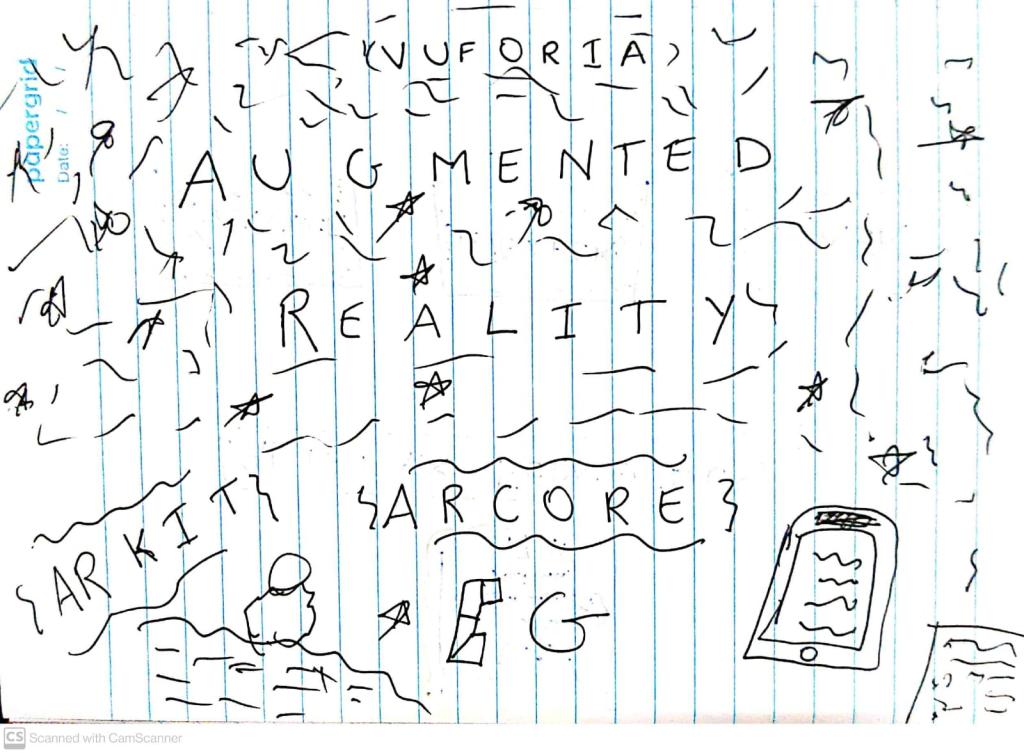 papergrid
Date: / /
{VUFORIA}
AUGMENTED
REALITY
{ARKIT}
{ARCORE}
G
CS Scanned with CamScanner